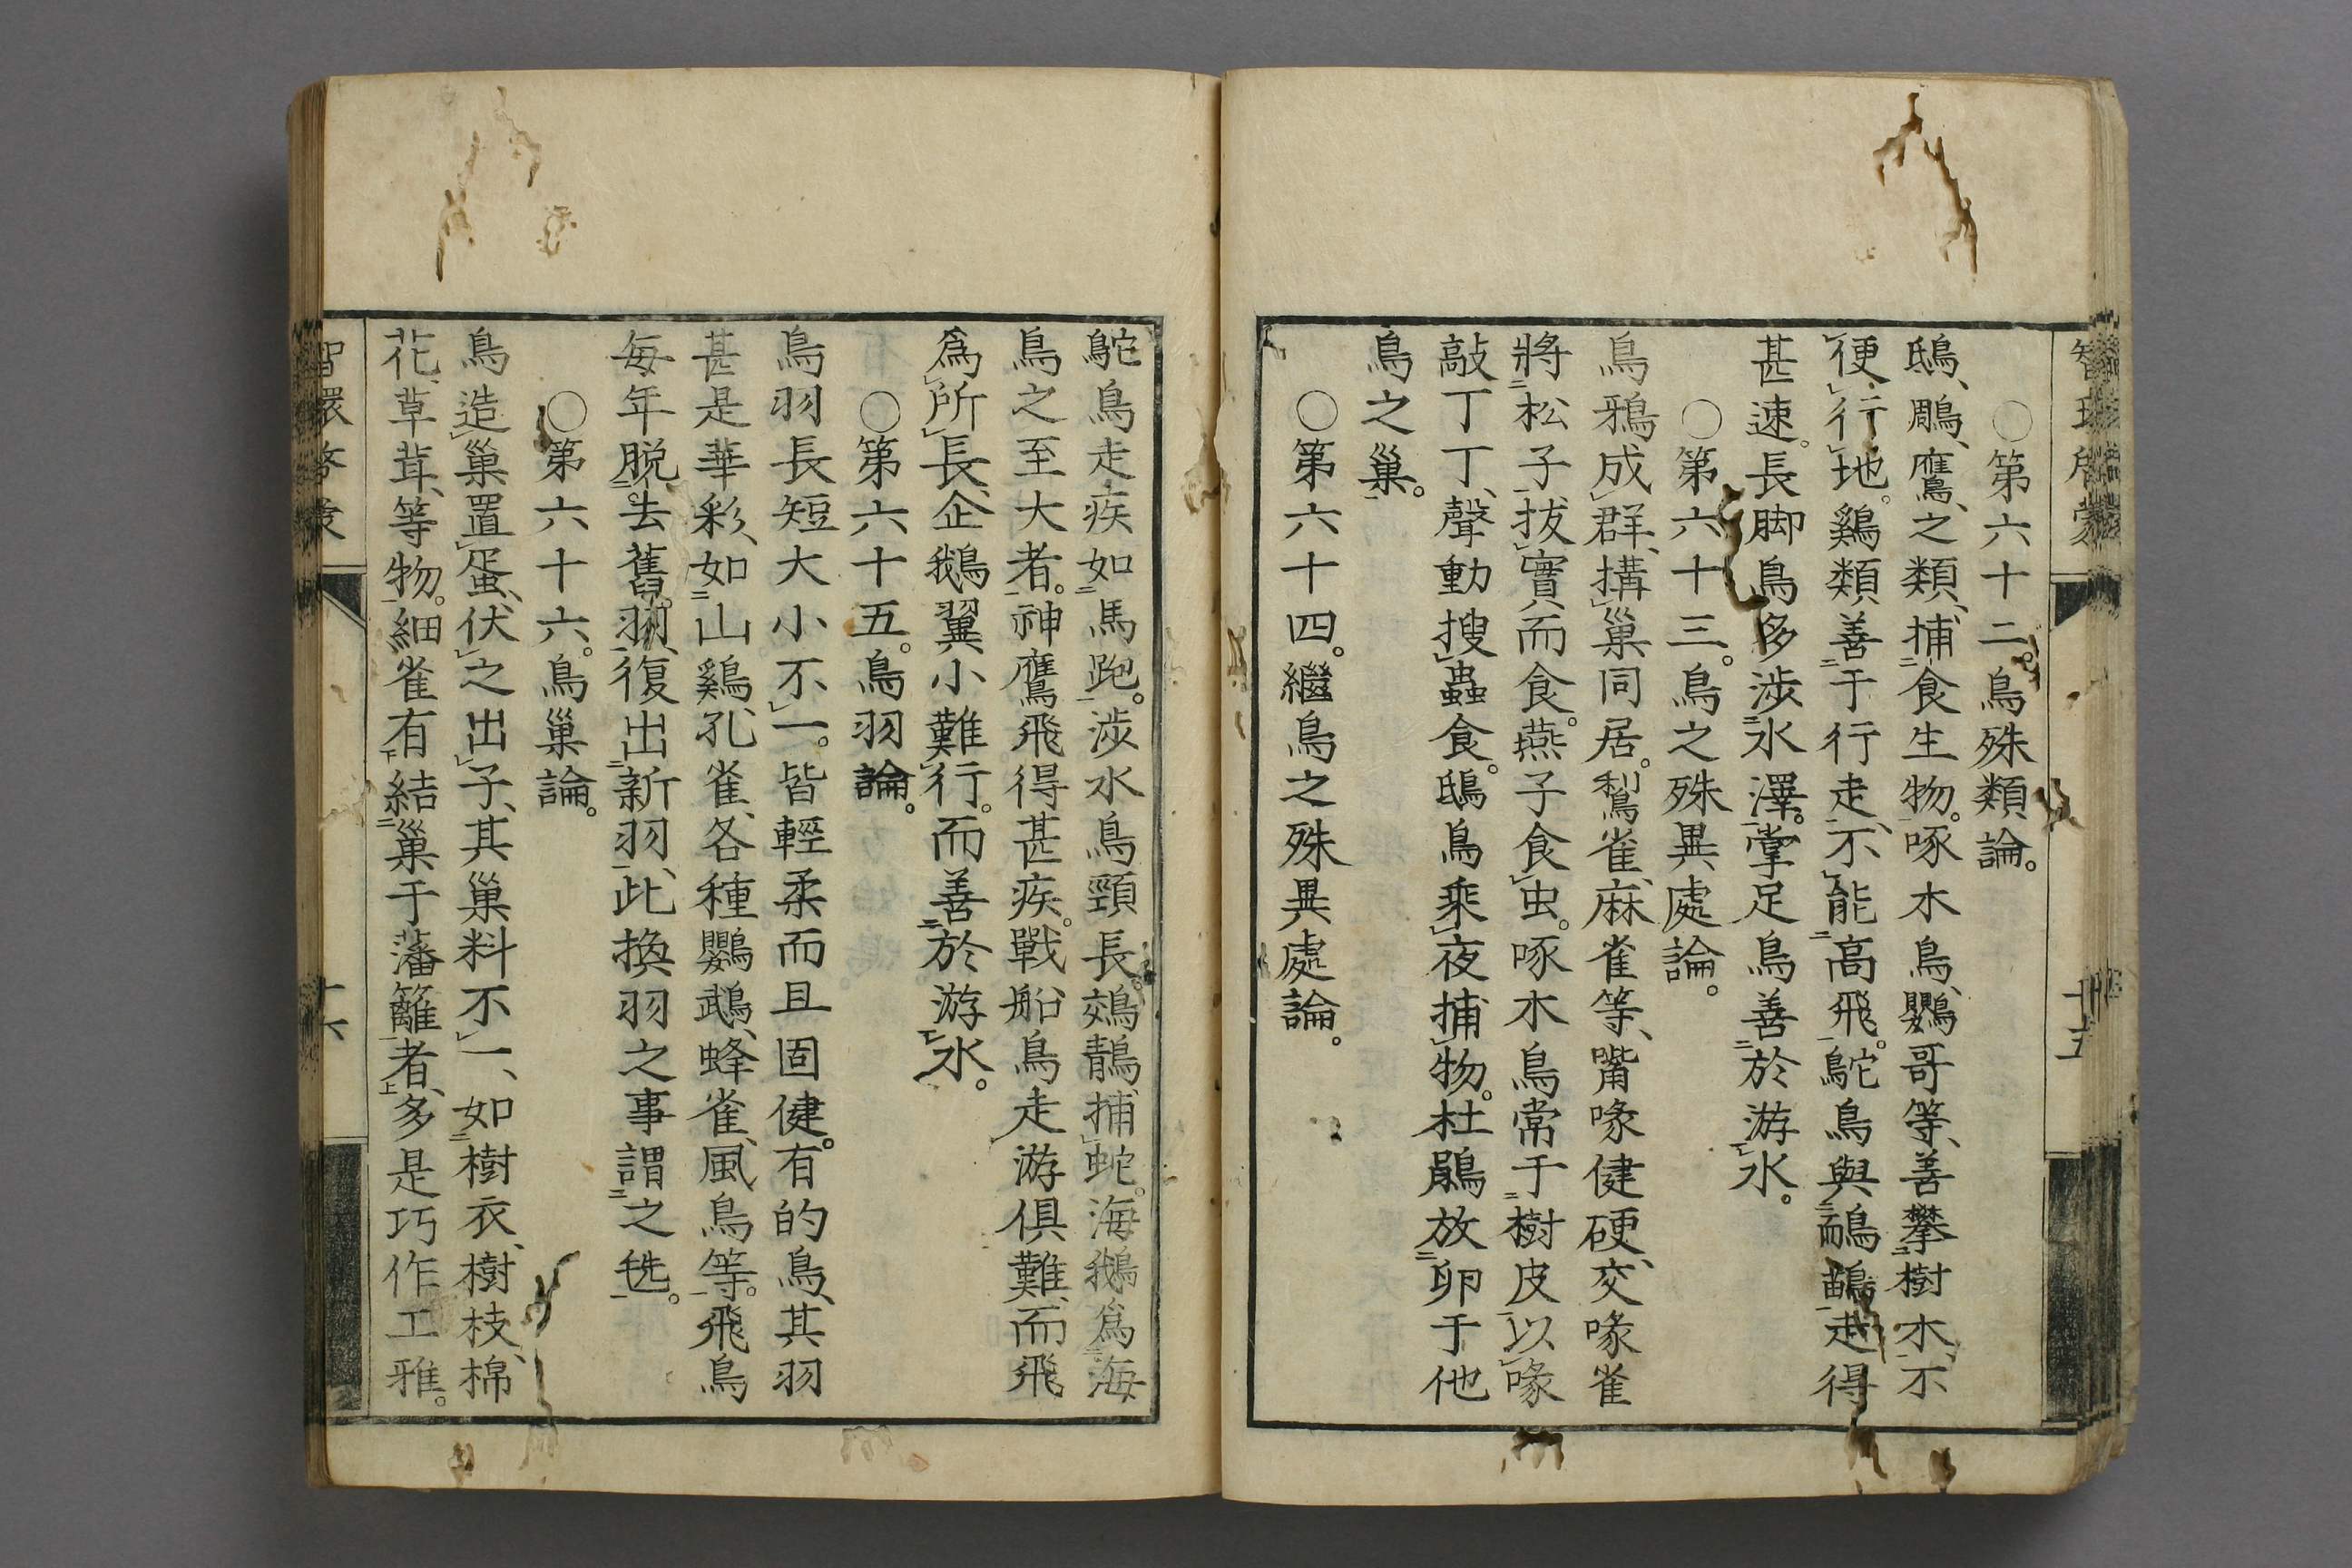 ○第六十二。鳥殊類論。
鴟、鵰、鷹、之類、捕食生物。啄木鳥、鸚哥等、善攀樹木、不
便行地。鷄類善于行走、不能高飛。鴕鳥與鴯鶓走得
甚速。長脚鳥多涉水澤。掌足鳥善於游水。
○第六十三。鳥之殊異處論。
烏鴉成群、搆巢同居。鵹雀、麻雀等、嘴喙健硬、交喙雀
將松子拔實而食。燕子食虫。啄木鳥常于樹皮以喙
敲丁丁、聲動搜蟲食。鴟鳥乘夜捕物。杜鵑放卵于他
鳥之巢。
○第六十四。繼鳥之殊異處論。
鴕鳥走疾如馬跑。涉水鳥頸長。鵁鶄、捕蛇。海鵝爲海
鳥之至大者。神鷹飛得甚疾。戰船鳥走游俱難、而飛
爲所長、企鵝翼小難行。而善於游水。
○第六十五。鳥羽論。
鳥羽長短大小不一。皆輕柔而且固健。有的鳥、其羽
甚是華彩、如山鷄、孔雀、各種鸚鵡、蜂雀、風鳥等。飛鳥
每年脱去舊羽、復出新羽、此換羽之事謂之毨。
○第六十六。鳥巢論。
鳥造巢置蛋、伏之出子、其巢料不一、如樹衣、樹枝、棉
花、草茸、等物。細雀有結巢于藩籬者、多是巧作工雅。
智環啓蒙
十五
十六